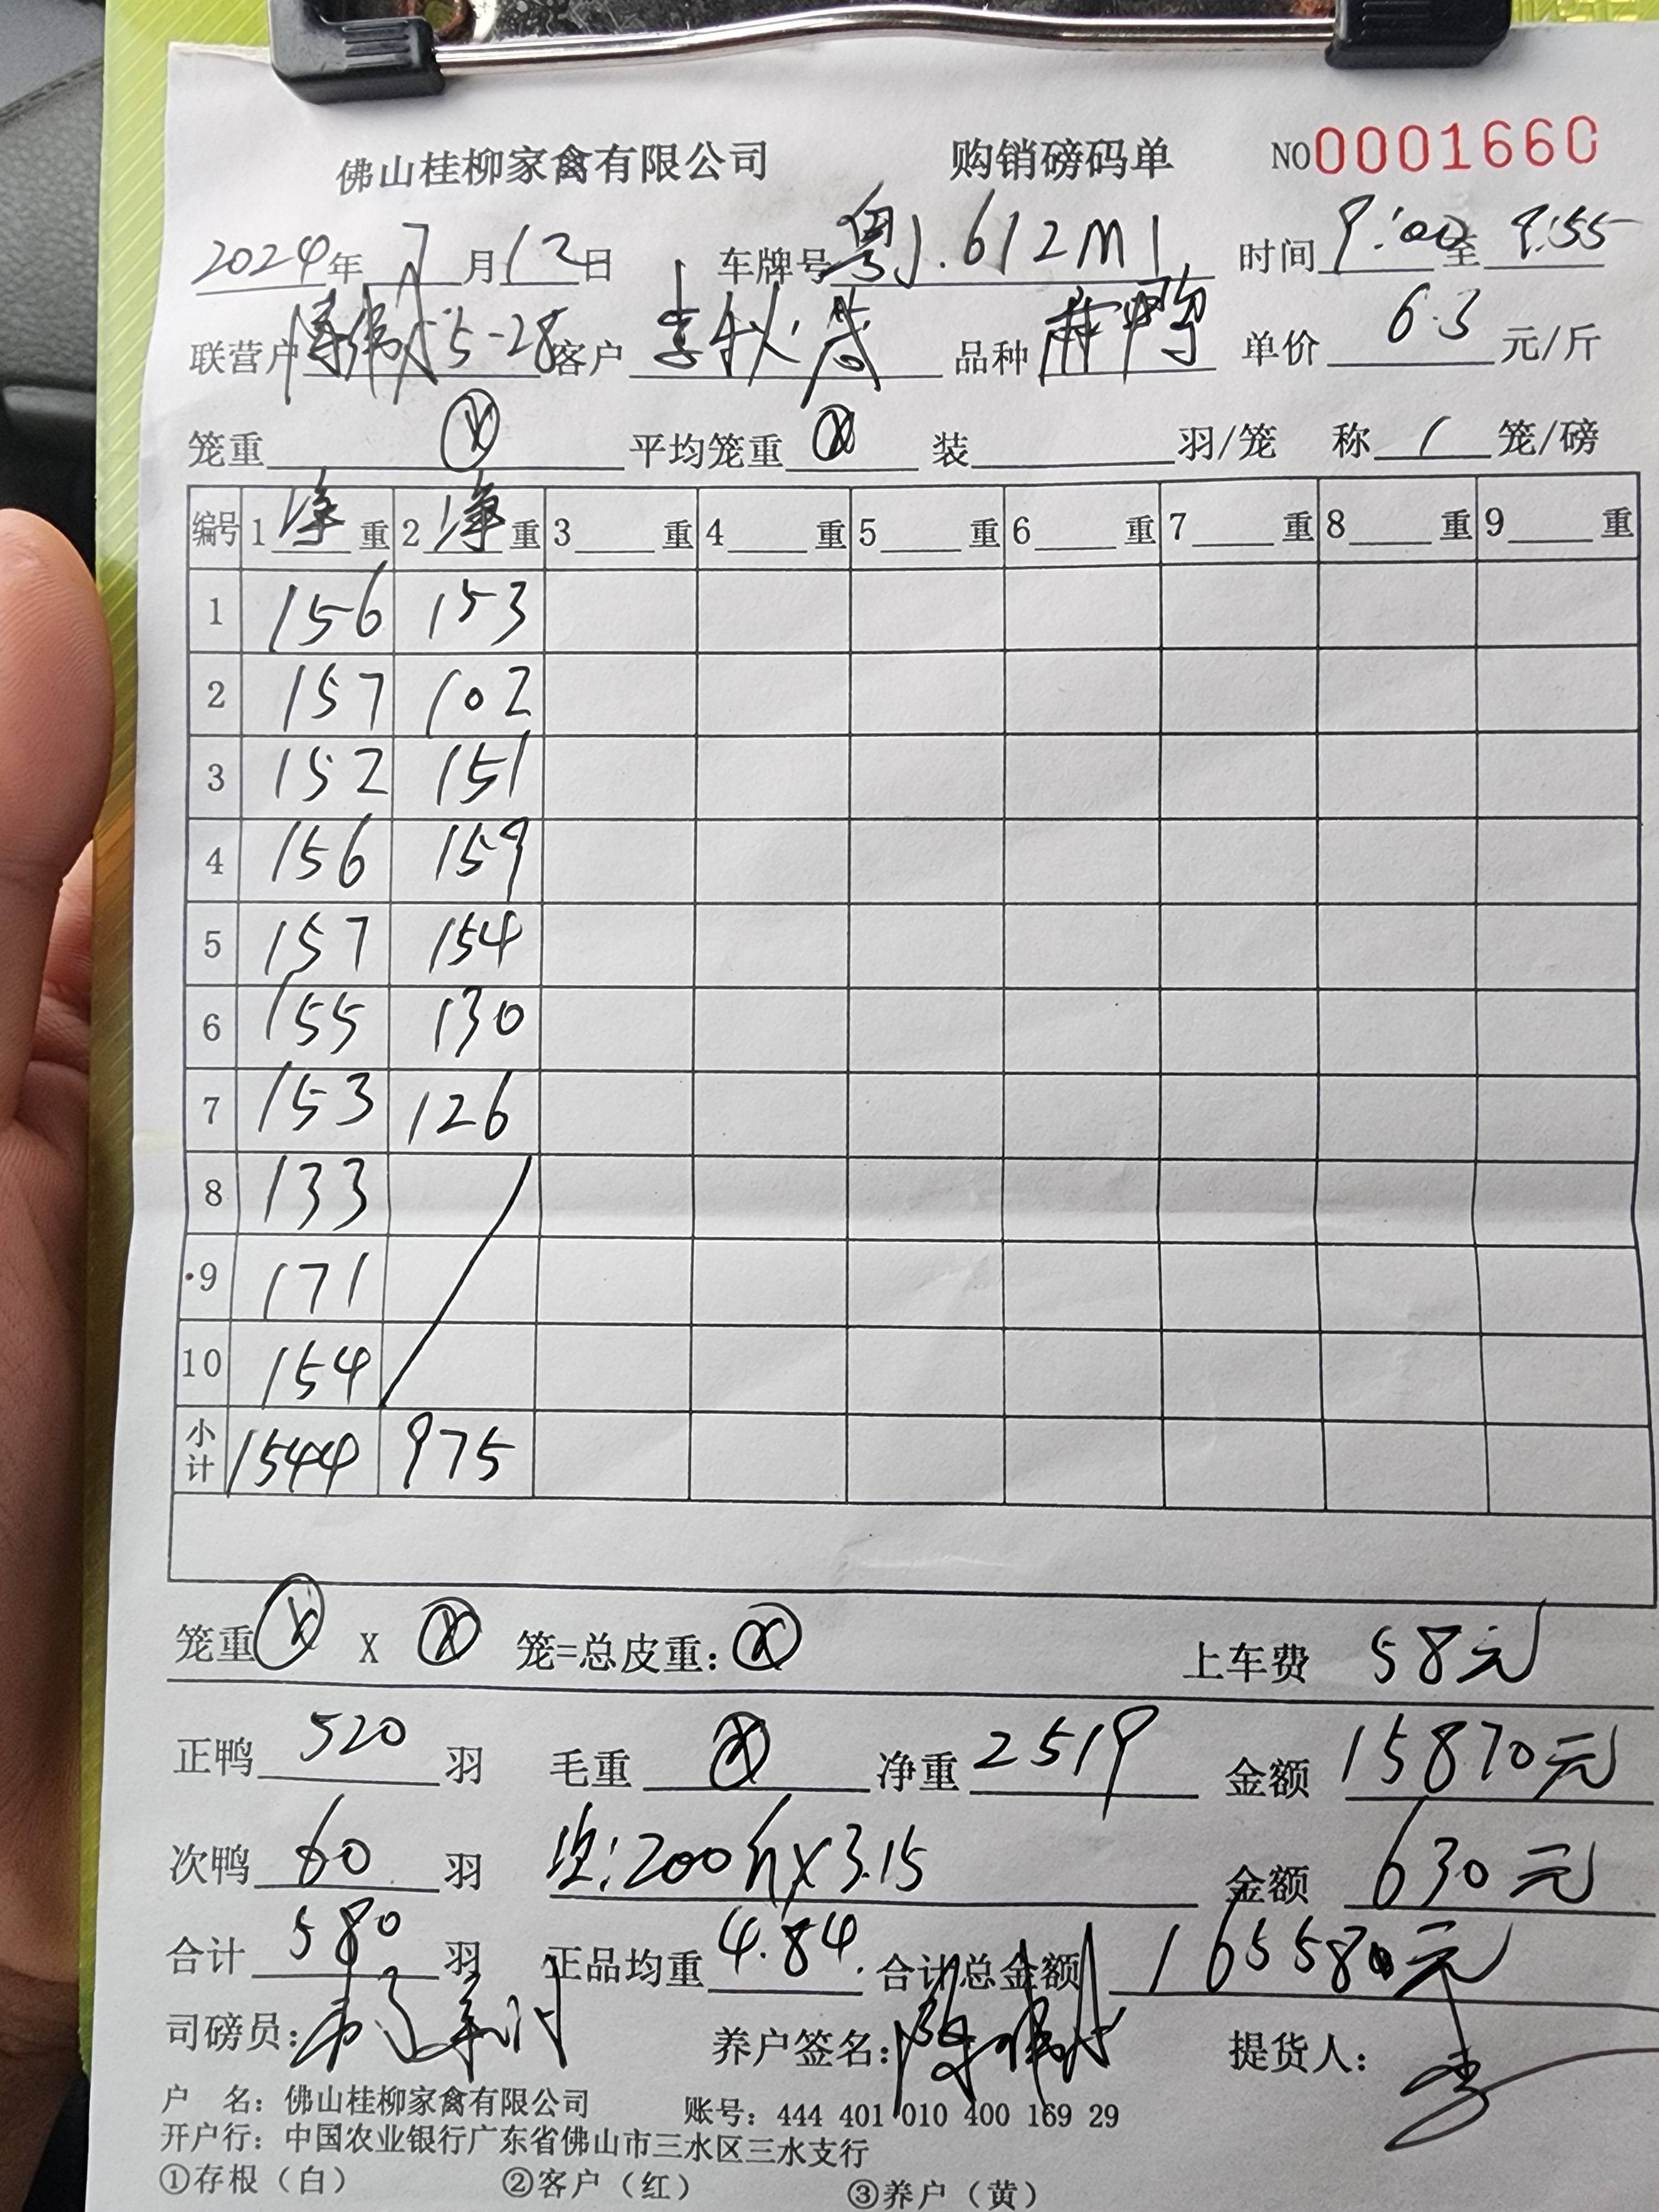 佛山桂柳家禽有限公司 购销磅码单 NO0001660
2024年 7 月 12 日 车牌号 粤J.612M1 时间 9:00 至 9:55
联营户 陈伟成 5-28 客户 李秋 品种 麻鸭 单价 6.3 元/斤
笼重 平均笼重 装 羽/笼 称 1 笼/磅
编号 1 净 重 2 净 重 3 重 4 重 5 重 6 重 7 重 8 重 9 重
1 156 153
2 157 102
3 152 151
4 156 159
5 157 154
6 155 130
7 153 126
8 133
9 171
10 154
小计 1544 975
笼重 X 笼=总皮重: 上车费 58元
正鸭 520 羽 毛重 净重 2519 金额 15870元
次鸭 60 羽 :200斤X3.15 金额 630元
合计 580 羽 正品均重 4.84. 合计总金额 16558元
司磅员: 养户签名: 提货人: 李
户 名: 佛山桂柳家禽有限公司 账号: 444 401 010 400 169 29
开户行: 中国农业银行广东省佛山市三水区三水支行
①存根（白） ②客户（红） ③养户（黄）